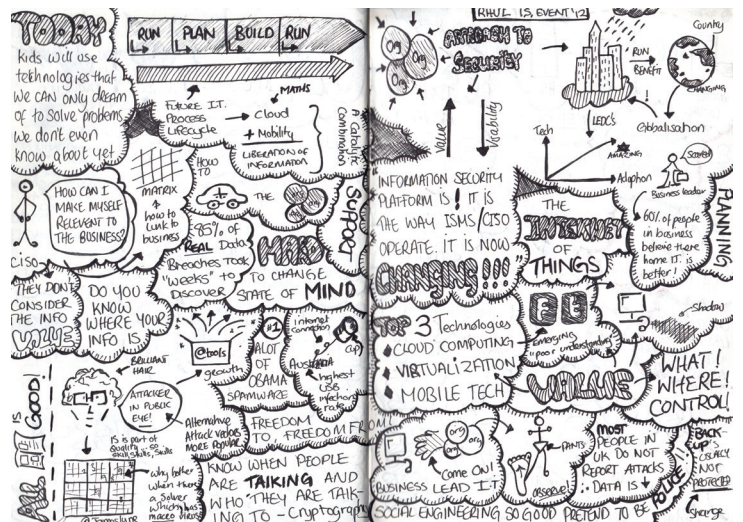 TODAY
kids will use
technologies that
we can only dream
of to solve problems
we don't even
know about yet
RUN PLAN BUILD RUN
FUTURE I.T.
PROCESS
Lifecycle
MATHS
Cloud
+ Mobility
LIBERATION OF
INFORMATION
A Catalytic
Combination
HOW CAN I
MAKE MYSELF
RELEVENT TO
THE BUSINESS?
CISO
MATRIX
how to
link to
business
HOW
TO
THE
SUPPORT
HARD
TO CHANGE
STATE OF MIND
85% of
REAL Data
Breaches Took
"Weeks" to
Discover
THEY DON'T
CONSIDER
THE INFO
VALUE
DO YOU
KNOW
WHERE YOUR
INFO IS
@tools
growth
#1
ALOT
OF
OBAMA
SPAMWARE
internet
connection
Australia
highest
USB
infection
rate
BRILLIANT
HAIR
ATTACKER
IN PUBLIC
EYE!
Alternating
Attack vector
More Popular
FREEDOM
TO, FREEDOM FROM
GOOD!
IS
ALL
IS is part of
Quality
Skills, Skills, Skills
Why bother
when there
a Solver
which has
macro virus
KNOW WHEN PEOPLE
ARE TALKING AND
WHO THEY ARE TALK-
ING TO - Cryptography
RHUL IS, EVENT '12
Org
Org
Org
APPROACH TO
SECURITY
Value
Usability
RUN
BENEFIT
Country
CHANGING
!
Globalisation
LEDC's
Tech
AMAZING
Adoption
Scared
Business leader
60% of people
in business
believe there
home IT. is
better!
PLANNING
"INFORMATION SECURITY
PLATFORM IS ! IT IS
THE WAY ISMS/CISO
OPERATE. IT IS NOW
CHANGING!!!"
THE
INTERNET
OF
THINGS
TOP 3 Technologies
CLOUD COMPUTING
VIRTUALIZATION
MOBILE TECH
emerging
"poor understanding"
VALUE
Shadow
WHAT!
WHERE!
CONTROL!
org
org
org
COME ON!
BUSINESS LEAD I.T
PANTS
OBSERVE!
MOST
PEOPLE IN
UK DO NOT
REPORT ATTACKS
DATA IS
BACK-
UP'S
USUALLY
NOT
PROTECTED
SOCIAL ENGINEERING SO GOOD PRETEND TO BE
POLICE